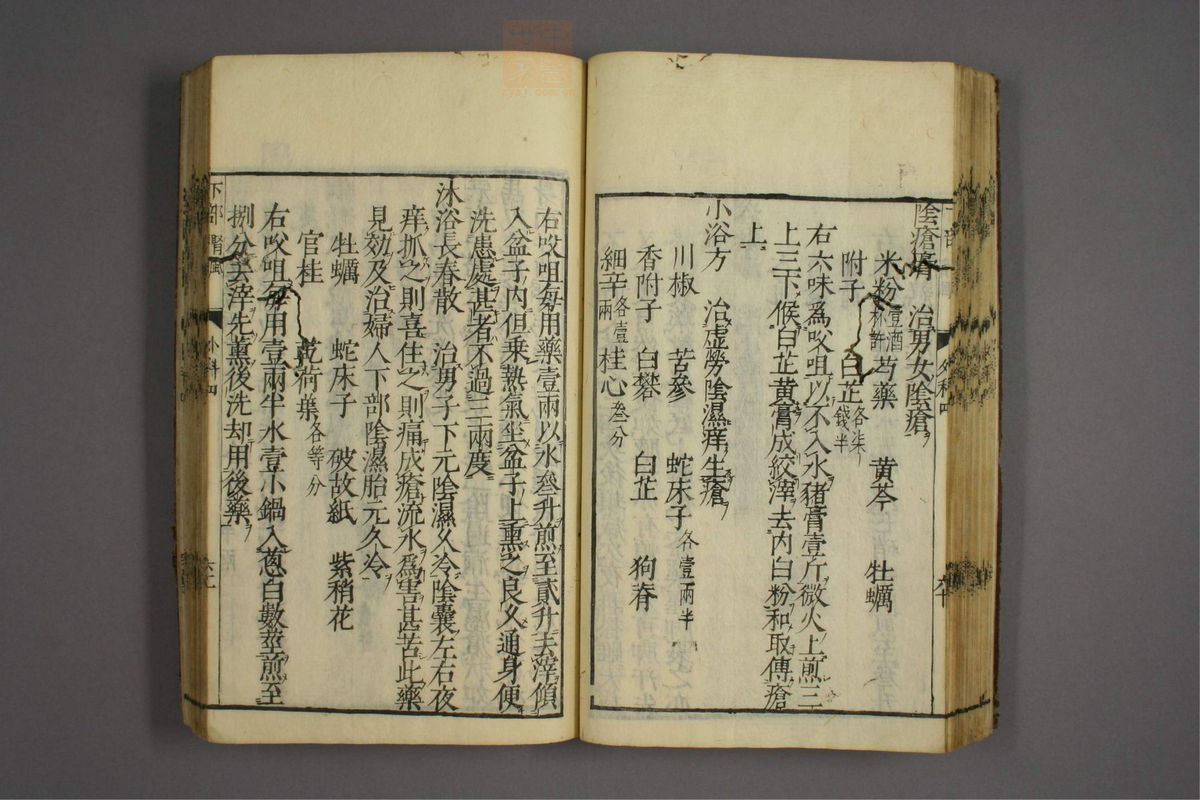 陰瘡膏　治男女陰瘡
米粉壹酒杯許　芍藥　黄芩　牡蠣
附子　白芷各柒錢半
右六味爲㕮咀以不入水猪膏壹斤微火上煎三
上三下候白芷黄膏成絞滓去内白粉和取傅瘡
上
小浴方　治虚勞陰濕痒生瘡
川椒　苦參　蛇床子各壹兩半
香附子　白礬　白芷　狗脊
細辛各壹兩　桂心叁分
右㕮咀每用藥壹兩以水叁升煎至貳升去滓傾
入盆子内但乗熱氣坐盆子上熏之良久通身便
洗患處甚者不過三兩度
沐浴長春散　治男子下元陰濕久冷陰囊左右夜
痒抓之則喜住之則痛成瘡流水爲害甚苦此藥
見効及治婦人下部陰濕胎元久冷
牡蠣　蛇床子　破故紙　紫稍花
官桂　乾荷葉各等分
右㕮咀每用壹兩半水壹小鍋入蔥白數莖煎至
捌分去滓先薰後洗却用後藥
下部　腎風　外科四